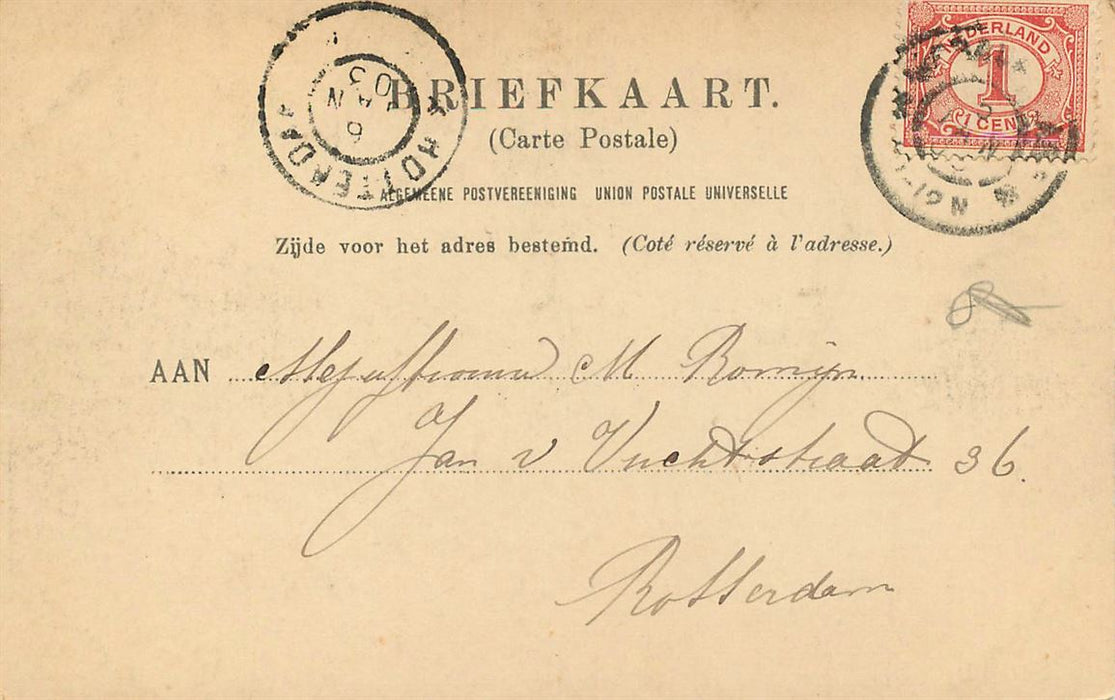 BRIEFKAART.
(Carte Postale)
ALGEMEENE POSTVEREENIGING UNION POSTALE UNIVERSELLE
Zijde voor het adres bestemd. (Coté réservé à l'adresse.)
NEDERLAND
1
1 CENT
ROTTERDAM
6 JAN 03
AAN Mejuffrouw M Romijn
Jan v Vuchtstraat 36.
Rotterdam